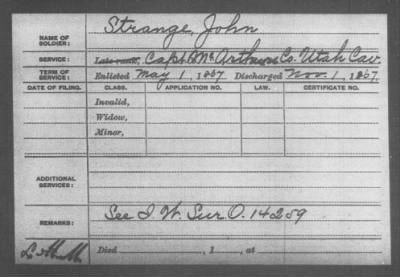 NAME OF SOLDIER: Strange, John
SERVICE: Late rank, Capt. McArthurs Co. Utah Cav.
TERM OF SERVICE: Enlisted May 1, 1867. Discharged Nov. 1, 1867.
DATE OF FILING. CLASS. APPLICATION NO. LAW. CERTIFICATE NO.
Invalid,
Widow,
Minor,
ADDITIONAL SERVICES:
REMARKS: See I. W. Sur O. 14259
Died , 1 , at